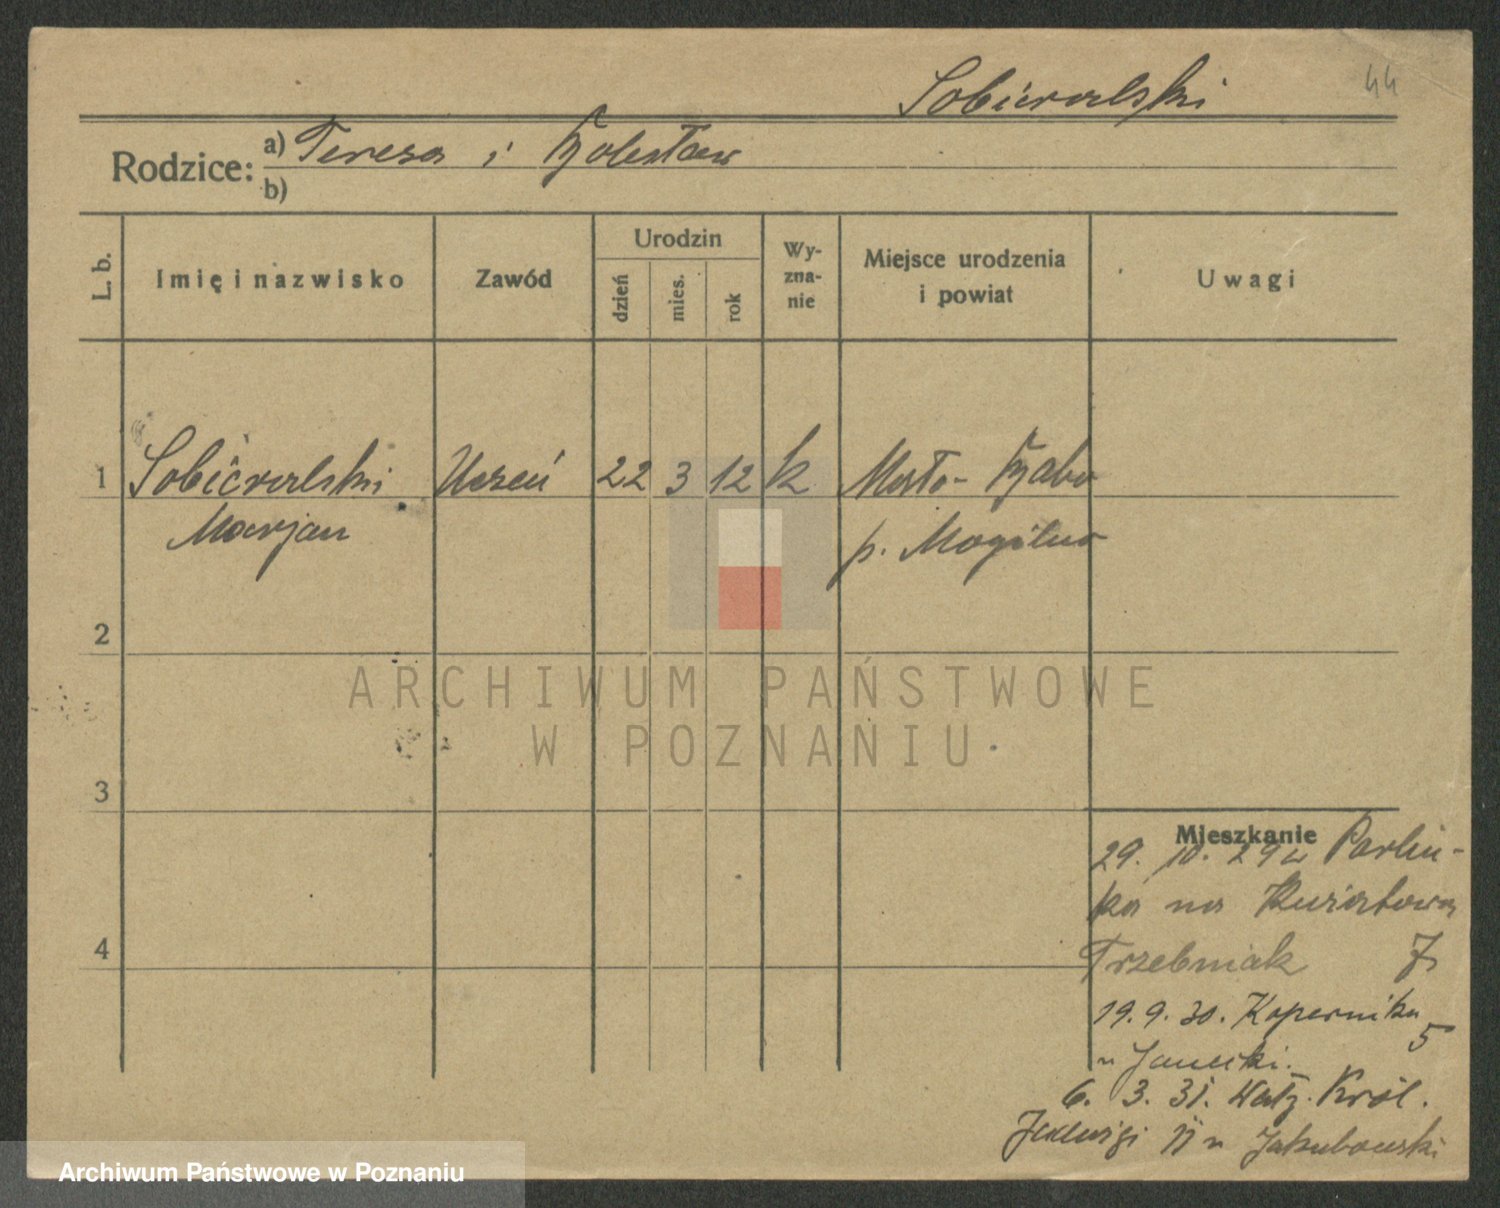 Sobieralski
44
Rodzice: a) Teresa i Bolesław
b)
L. b.
Imię i nazwisko
Zawód
Urodzin
dzień
mies.
rok
Wy-
zna-
nie
Miejsce urodzenia
i powiat
Uwagi
1 Sobieralski Uczeń 22 3 12 k
Marjan p. Mogilno
2
ARCHIWUM PAŃSTWOWE
W POZNANIU
3
Mieszkanie
29. 10. 29
ka na
4 Trzebniak
19. 9. 30. Kopernika
5
u Janecki.
6. 3. 31. Król.
Jadwigi 11 u Jakubowski
Archiwum Państwowe w Poznaniu